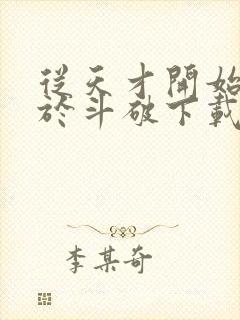 從天才開始
於斗破下載
李某奇